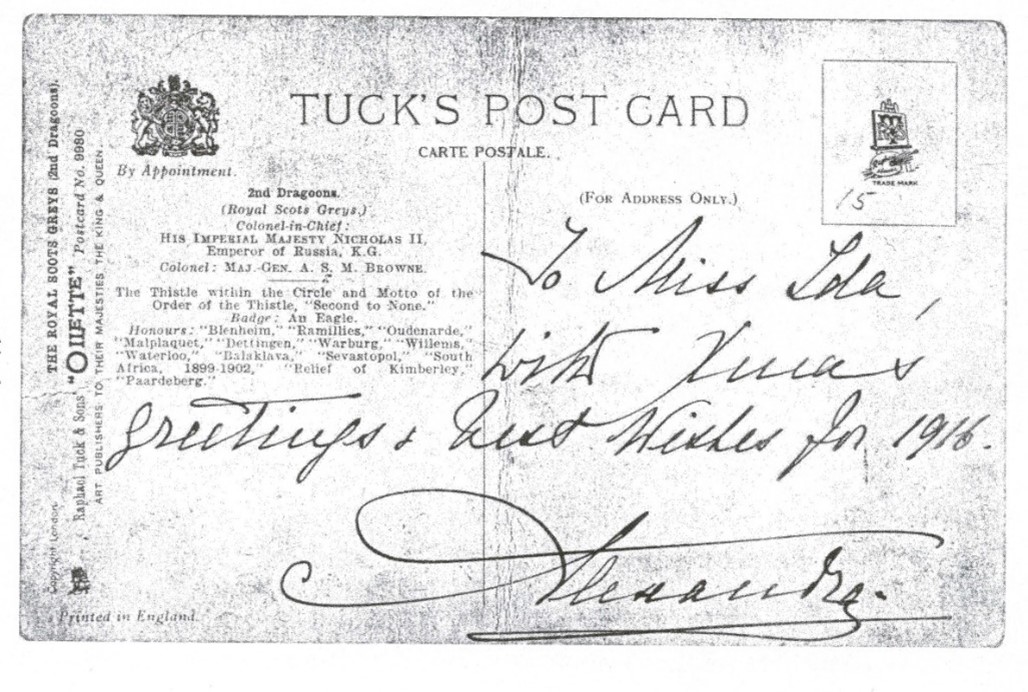 TUCK'S POST CARD
CARTE POSTALE.
By Appointment.
(FOR ADDRESS ONLY.)
TRADE MARK
15
2nd Dragoons.
(Royal Scots Greys.)
Colonel-in-Chief:
HIS IMPERIAL MAJESTY NICHOLAS II,
Emperor of Russia, K.G.
Colonel: MAJ.-GEN. A. S. M. BROWNE.
The Thistle within the Circle and Motto of the
Order of the Thistle, "Second to None."
Badge: An Eagle.
Honours: "Blenheim," "Ramillies," "Oudenarde,"
"Malplaquet," "Dettingen," "Warburg," "Willems,"
"Waterloo," "Balaklava," "Sevastopol," "South
Africa, 1899-1902," "Relief of Kimberley,"
"Paardeberg."
To Miss Ida,
with Xmas
greetings & best wishes for 1916.
Alexandra.
THE ROYAL SCOTS GREYS (2nd Dragoons).
Raphael Tuck & Sons' "OILETTE" Postcard No. 9980
ART PUBLISHERS TO THEIR MAJESTIES THE KING & QUEEN.
Copyright London.
Printed in England.